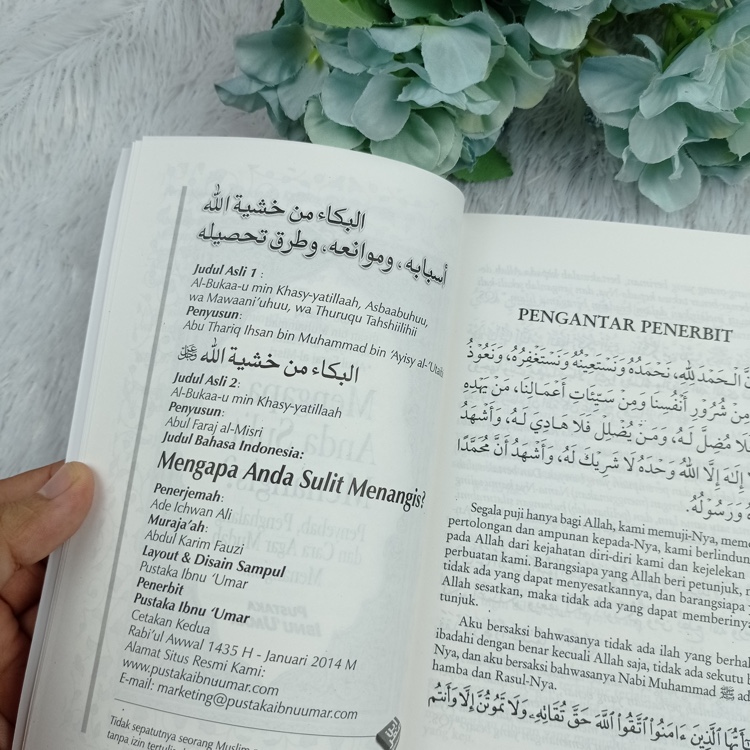 البكاء من خشية الله
أسبابه، وموانعه، وطرق تحصيله
Judul Asli 1 :
Al-Bukaa-u min Khasy-yatillaah, Asbaabuhuu,
wa Mawaani'uhuu, wa Thuruqu Tahshiilihii
Penyusun:
Abu Thariq Ihsan bin Muhammad bin 'Ayisy al-'Utaibi
البكاء من خشية الله ﷻ
Judul Asli 2:
Al-Bukaa-u min Khasy-yatillaah
Penyusun:
Abul Faraj al-Misri
Judul Bahasa Indonesia:
Mengapa Anda Sulit Menangis?
Penerjemah:
Ade Ichwan Ali
Muraja'ah:
Abdul Karim Fauzi
Layout & Disain Sampul
Pustaka Ibnu 'Umar
Penerbit
Pustaka Ibnu 'Umar
Cetakan Kedua
Rabi'ul Awwal 1435 H - Januari 2014 M
Alamat Situs Resmi Kami:
www.pustakaibnuumar.com
E-mail: marketing@pustakaibnuumar.com
Tidak sepatutnya seorang Muslim
tanpa izin
PENGANTAR PENERBIT
الْحَمْدَ لِلّٰهِ، نَحْمَدُهُ وَنَسْتَعِيْنُهُ وَنَسْتَغْفِرُهُ، وَنَعُوْذُ
مِنْ شُرُوْرِ أَنْفُسِنَا وَمِنْ سَيِّئَاتِ أَعْمَالِنَا، مَنْ يَهْدِهِ
فَلَا مُضِلَّ لَهُ، وَمَنْ يُضْلِلْ فَلَا هَادِيَ لَهُ، وَأَشْهَدُ
إِلٰهَ إِلَّا اللهُ وَحْدَهُ لَا شَرِيْكَ لَهُ، وَأَشْهَدُ أَنَّ مُحَمَّدًا
وَرَسُوْلُهُ.
Segala puji hanya bagi Allah, kami memuji-Nya,
pertolongan dan ampunan kepada-Nya, kami berlindung
pada Allah dari kejahatan diri-diri kami dan kejelekan
perbuatan kami. Barangsiapa yang Allah beri petunjuk,
tidak ada yang dapat menyesatkannya, dan barangsiapa
Allah sesatkan, maka tidak ada yang dapat
tunjuk.
Aku bersaksi bahwasanya tidak ada ilah yang
ibadahi dengan benar kecuali Allah saja, tidak ada sekutu
Nya, dan aku bersaksi bahwasanya Nabi Muhammad ﷺ
hamba dan Rasul-Nya.
الَّذِينَ ءَامَنُوا اتَّقُوا اللَّهَ حَقَّ تُقَاتِهِ وَلَا تَمُوتُنَّ إِلَّا وَأَنتُم